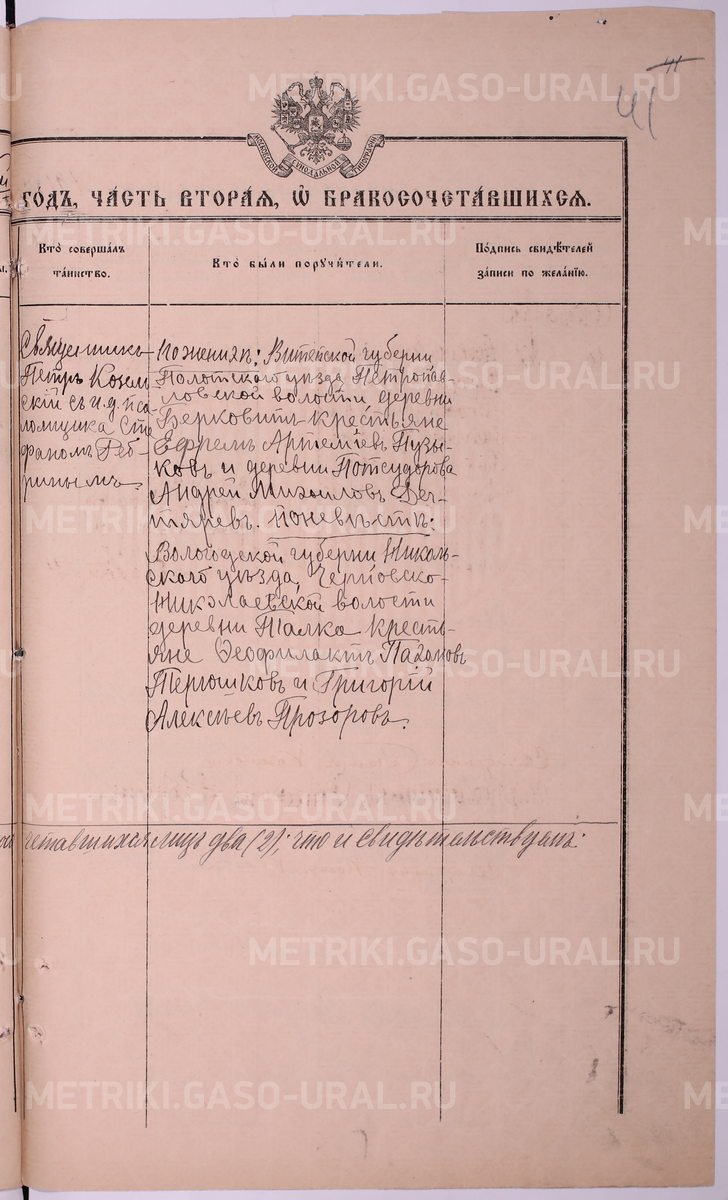 41
41
МОСКОВСКОЙ СѴНОДАЛЬНОЙ ТИПОГРАФІИ
ГО́ДЪ, ЧА́СТЬ ВТОРА́Я, Ѽ БРАКОСОЧЕТА́ВШИХСЯ.
Кто̀ соверша́лъ
та́инство.
Кто̀ бы́ли порꙋчи́тели.
По́дпись свидѣ́телей
за́писи по жела́нїю.
Священникъ
Петръ Козель
скій съ и. д. пса
ломщика Сте
фаномъ Реб
ринымъ.
По женихѣ: Витебской губерніи
Полотскаго уѣзда Петропав
ловской волости деревни
Берковитъ крестьяне
Ефремъ Артемьевъ Пузы
ковъ и деревни Потсудорова
Андрей Михаиловъ Дег
тяревъ. По невѣстѣ:
Вологодской губерніи Николь
скаго уѣзда, Черновско-
Николаевской волости
деревни Талка кресть
яне Ѳеофилактъ Пахомовъ
Терюшковъ и Григорій
Алексѣевъ Прозоровъ.
четавшихся лицъ два (2); что и свидѣтельствуемъ:
METRIKI.GASO-URAL.RU